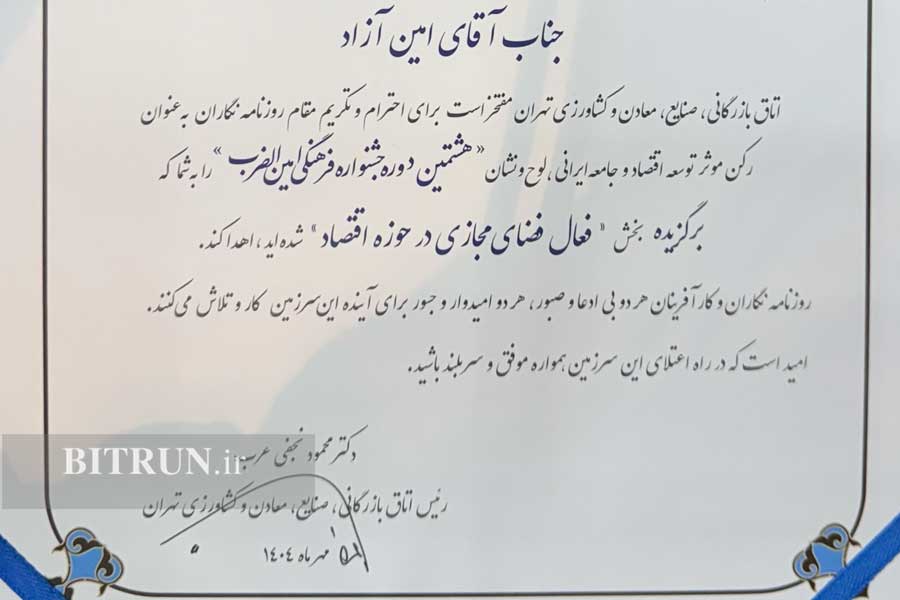 جناب آقای امین آزاد
اتاق بازرگانی، صنایع، معادن و کشاورزی تهران مفتخر است برای احترام و تکریم مقام روزنامه نگاران به عنوان
رکن موثر توسعه اقتصاد و جامعه ایرانی، لوح و نشان «هشتمین دوره جشنواره فرهنگی امین الضرب» را به شما که
برگزیده بخش «فعال فضای مجازی در حوزه اقتصاد» شده اید، اهدا کند.
روزنامه نگاران و کارآفرینان هر دو بی ادعا و صبور، هر دو امیدوار و جسور برای آینده این سرزمین کار و تلاش می کنند.
امید است که در راه اعتلای این سرزمین همواره موفق و سربلند باشید.
دکتر محمود نجفی عرب
BITRUN.ir
رئیس اتاق بازرگانی، صنایع، معادن و کشاورزی تهران
مهر ماه ۱۴۰۴